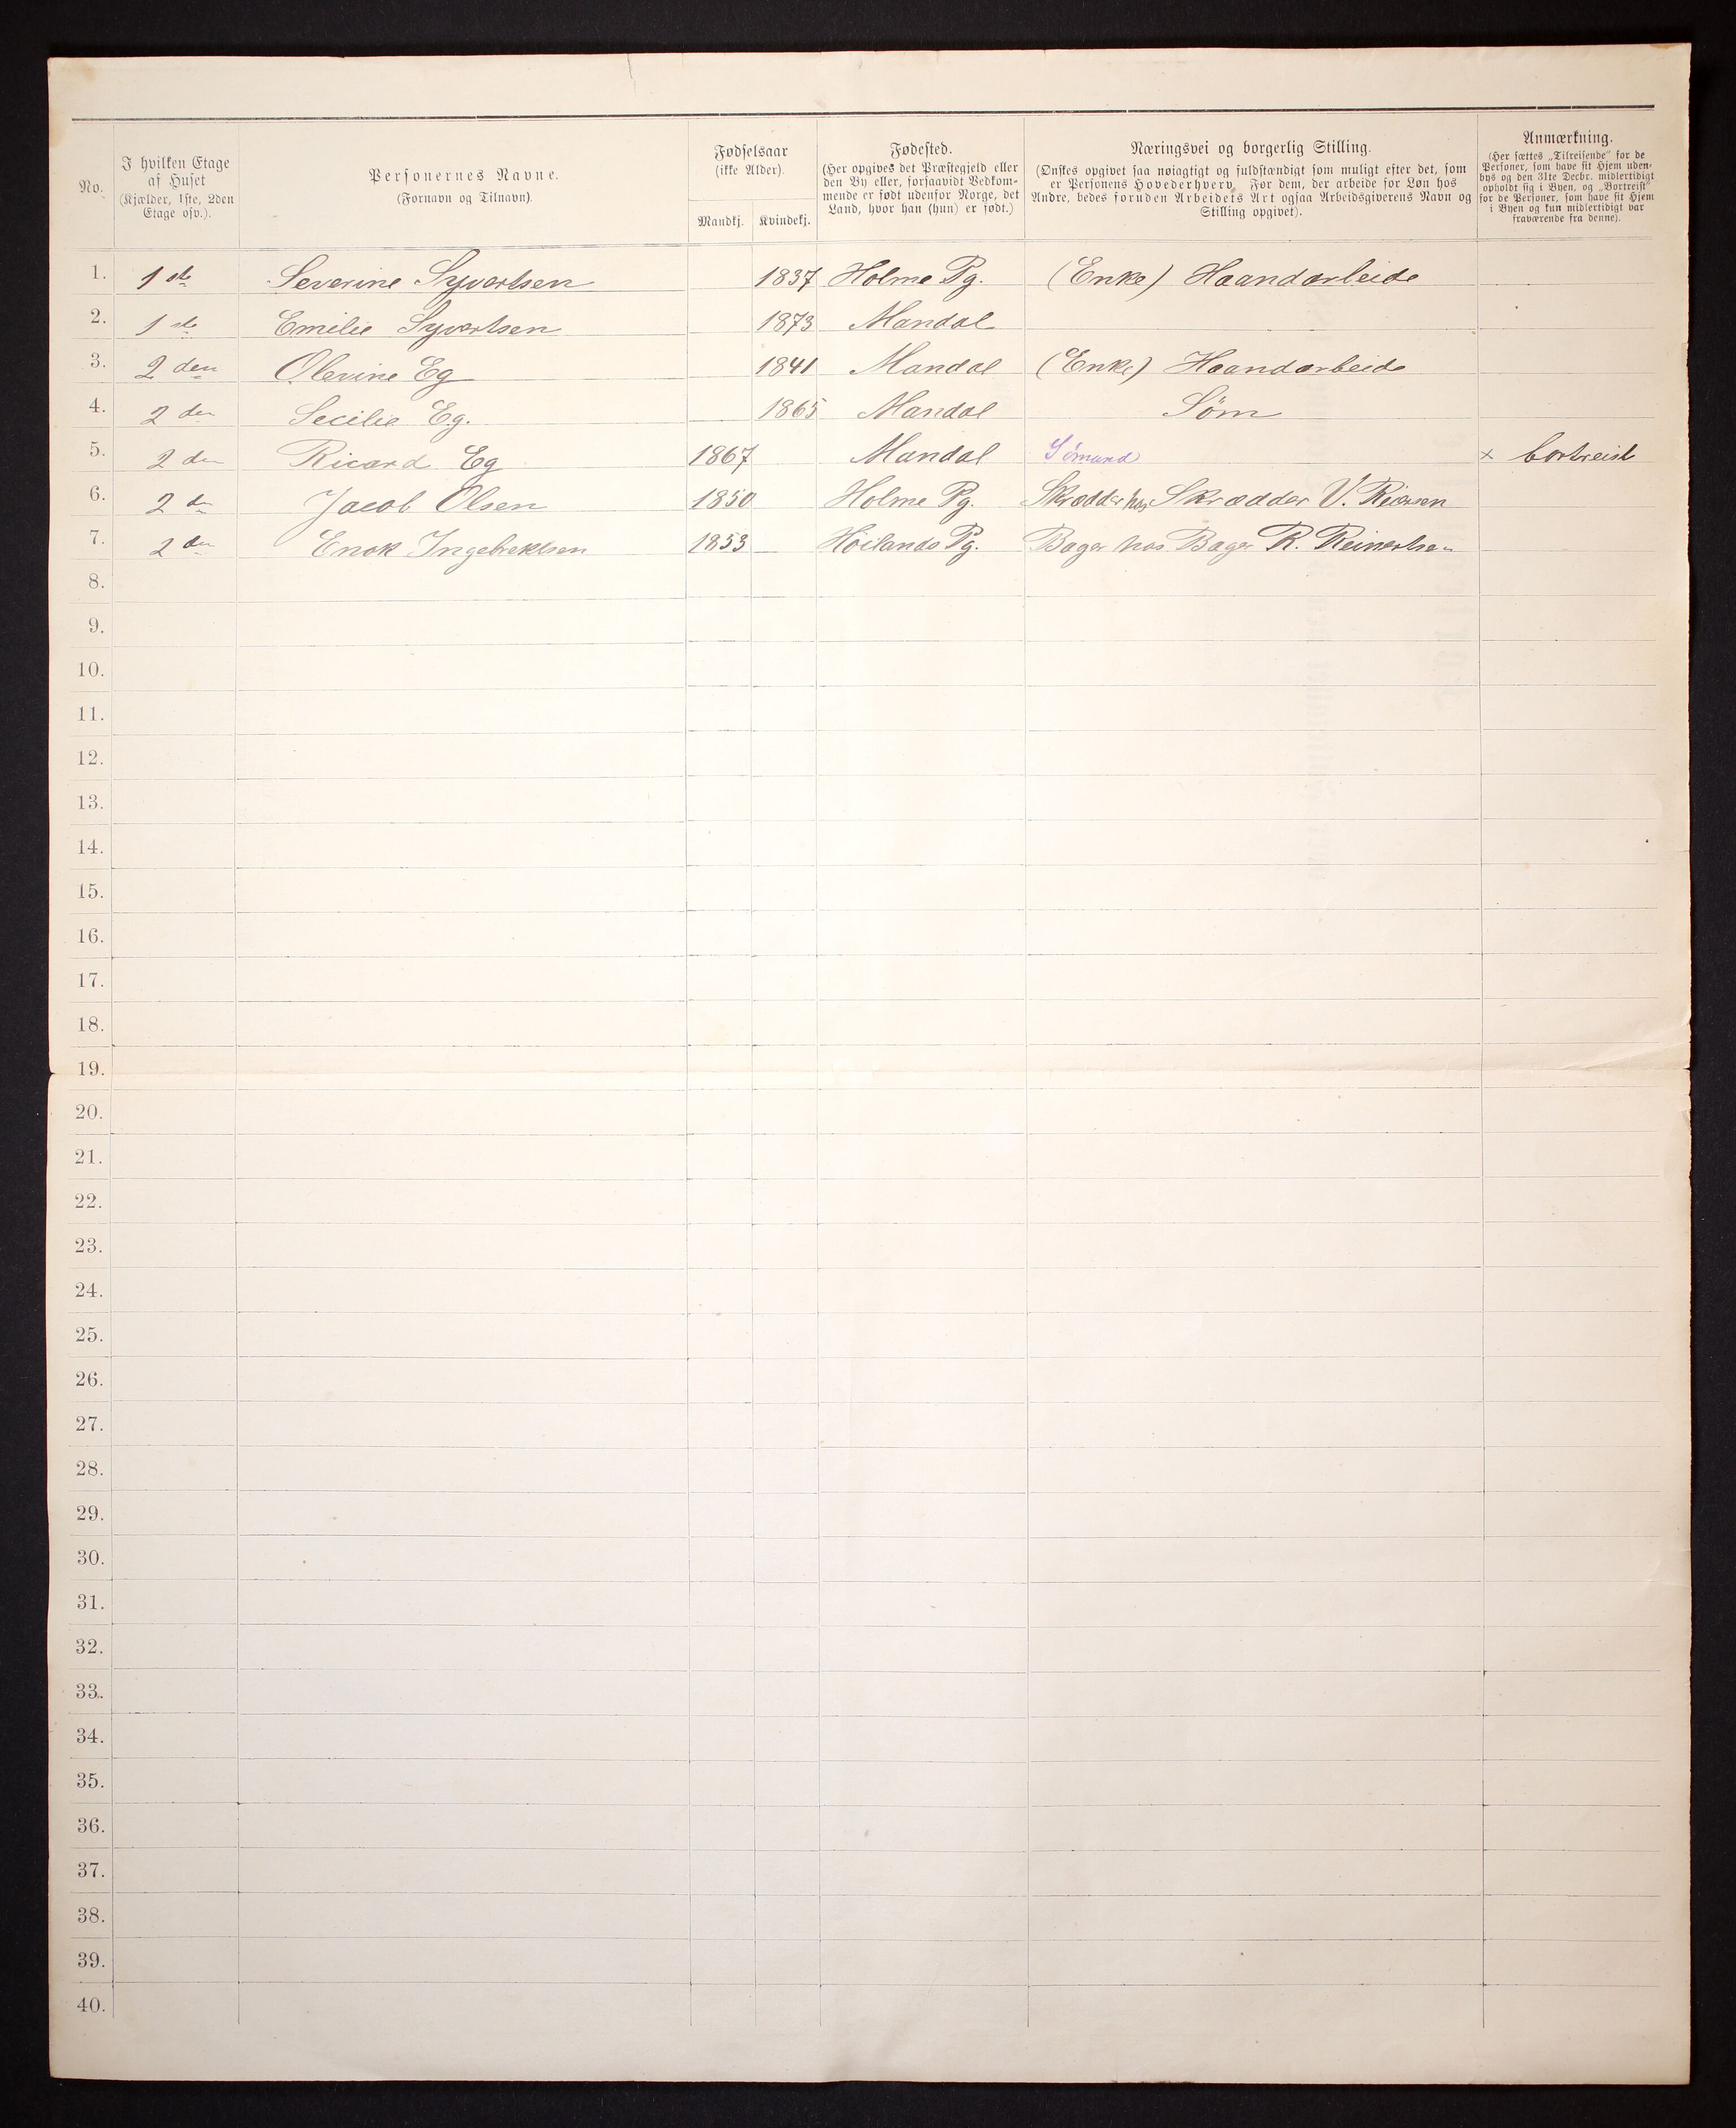 No.
I hvilken Etage
af Huset
(Kjælder, 1ste, 2den
Etage osv.).
Personernes Navne.
(Fornavn og Tilnavn).
Fødselsaar
(ikke Alder).
Mandkj. Kvindekj.
Fødested.
(Her opgives det Præstegjeld eller
den By eller, forsaavidt Vedkom-
mende er født udenfor Norge, det
Land, hvor han (hun) er født.)
Næringsvei og borgerlig Stilling.
(Ønskes opgivet saa nøiagtigt og fuldstændigt som muligt efter det, som
er Personens Hovederhverv. For dem, der arbeide for Løn hos
Andre, bedes foruden Arbeidets Art ogsaa Arbeidsgiverens Navn og
Stilling opgivet).
Anmærkning.
(Her sættes „Tilreisende“ for de
Personer, som have sit Hjem uden-
bys og den 31te Decbr. midlertidigt
opholdt sig i Byen, og „Bortreist“
for de Personer, som have sit Hjem
i Byen og kun midlertidigt var
fraværende fra denne).
1. 1ste Severine Syvertsen 1837 Holme Pg. (Enke) Haandarbeide
2. 1ste Emilie Syvertsen 1873 Mandal
3. 2den Olevine Eg 1841 Mandal (Enke) Haandarbeide
4. 2den Secilie Eg. 1865 Mandal Søm
5. 2den Ricard Eg 1867 Mandal Sømand × bortreist
6. 2den Jacob Olsen 1850 Holme Pg. Skrædder hos Skrædder V.
7. 2den Enok Ingebrektsen 1853 Høilands Pg. Bager hos Bager R. Reinertsen
8.
9.
10.
11.
12.
13.
14.
15.
16.
17.
18.
19.
20.
21.
22.
23.
24.
25.
26.
27.
28.
29.
30.
31.
32.
33.
34.
35.
36.
37.
38.
39.
40.